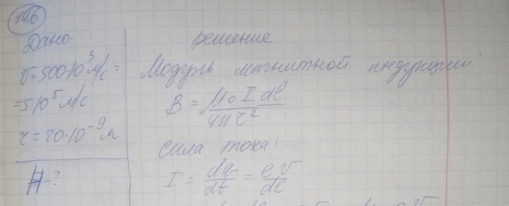 146
Дано
υ=500·10³ м/с =
=5·10⁵ м/с
r=20·10⁻⁹ м
H-?
решение
Модуль магнитной индукции:
B = μ₀ I dl / 4π r²
Сила тока:
I = dq/dt = e υ/dl